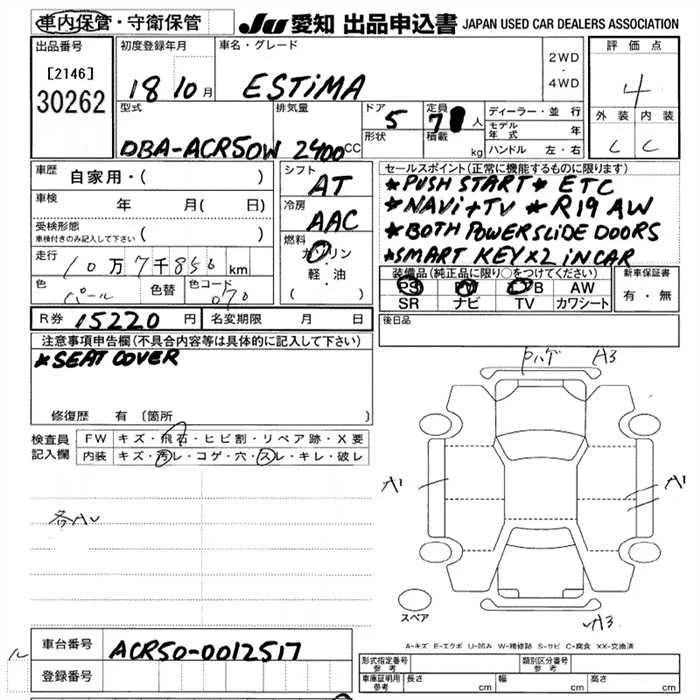 車内保管・守衛保管
JU 愛知 出品申込書 JAPAN USED CAR DEALERS ASSOCIATION
出品番号
[2146]
30262
初度登録年月
18 10月
車名・グレード
ESTiMA
2WD
・
4WD
評価点
4
外装 内装
C C
型式
DBA-ACR50W
排気量
2400CC
ドア
5
形状
定員
7 人
積載
kg
ディーラー・並行
モデル年式 年
ハンドル 左・右
車歴
自家用・( )
車検
年 月( 日)
受検形態
車検付きのみ記入して下さい ( )
走行
10万7千856km
色
パール
色替
色コード
070
シフト
AT
冷房
AAC
燃料
ガソリン
・
軽・油
( )
セールスポイント(正常に機能するものに限ります)
*PUSH START * ETC
*NAVi+TV *R19 AW
*BOTH POWERSLIDE DOORS
*SMART KEY×2 iNCAR
装備品(純正品に限り○をつけてください)
PS PW B AW
SR ナビ TV カワシート
新車保証書
有・無
R券 15220円
名変期限 月 日
後日品
注意事項申告欄(不具合内容等は具体的に記入して下さい)
*SEAT COVER
修復歴 有〔箇所 〕
検査員記入欄
FW キズ・飛石・ヒビ割・リペア跡・X要
内装 キズ・汚レ・コゲ・穴・スレ・キレ・破レ
各AU
A3
A1
A1
A3
スペア
A-キズ E-エクボ U-凹み W-補修跡 S-サビ C-腐食 XX-交換済
車台番号
ACR50-0012517
登録番号
形式指定番号
参考
類別区分番号
参考
車庫証明用
参考
長さ cm
幅 cm
高さ cm